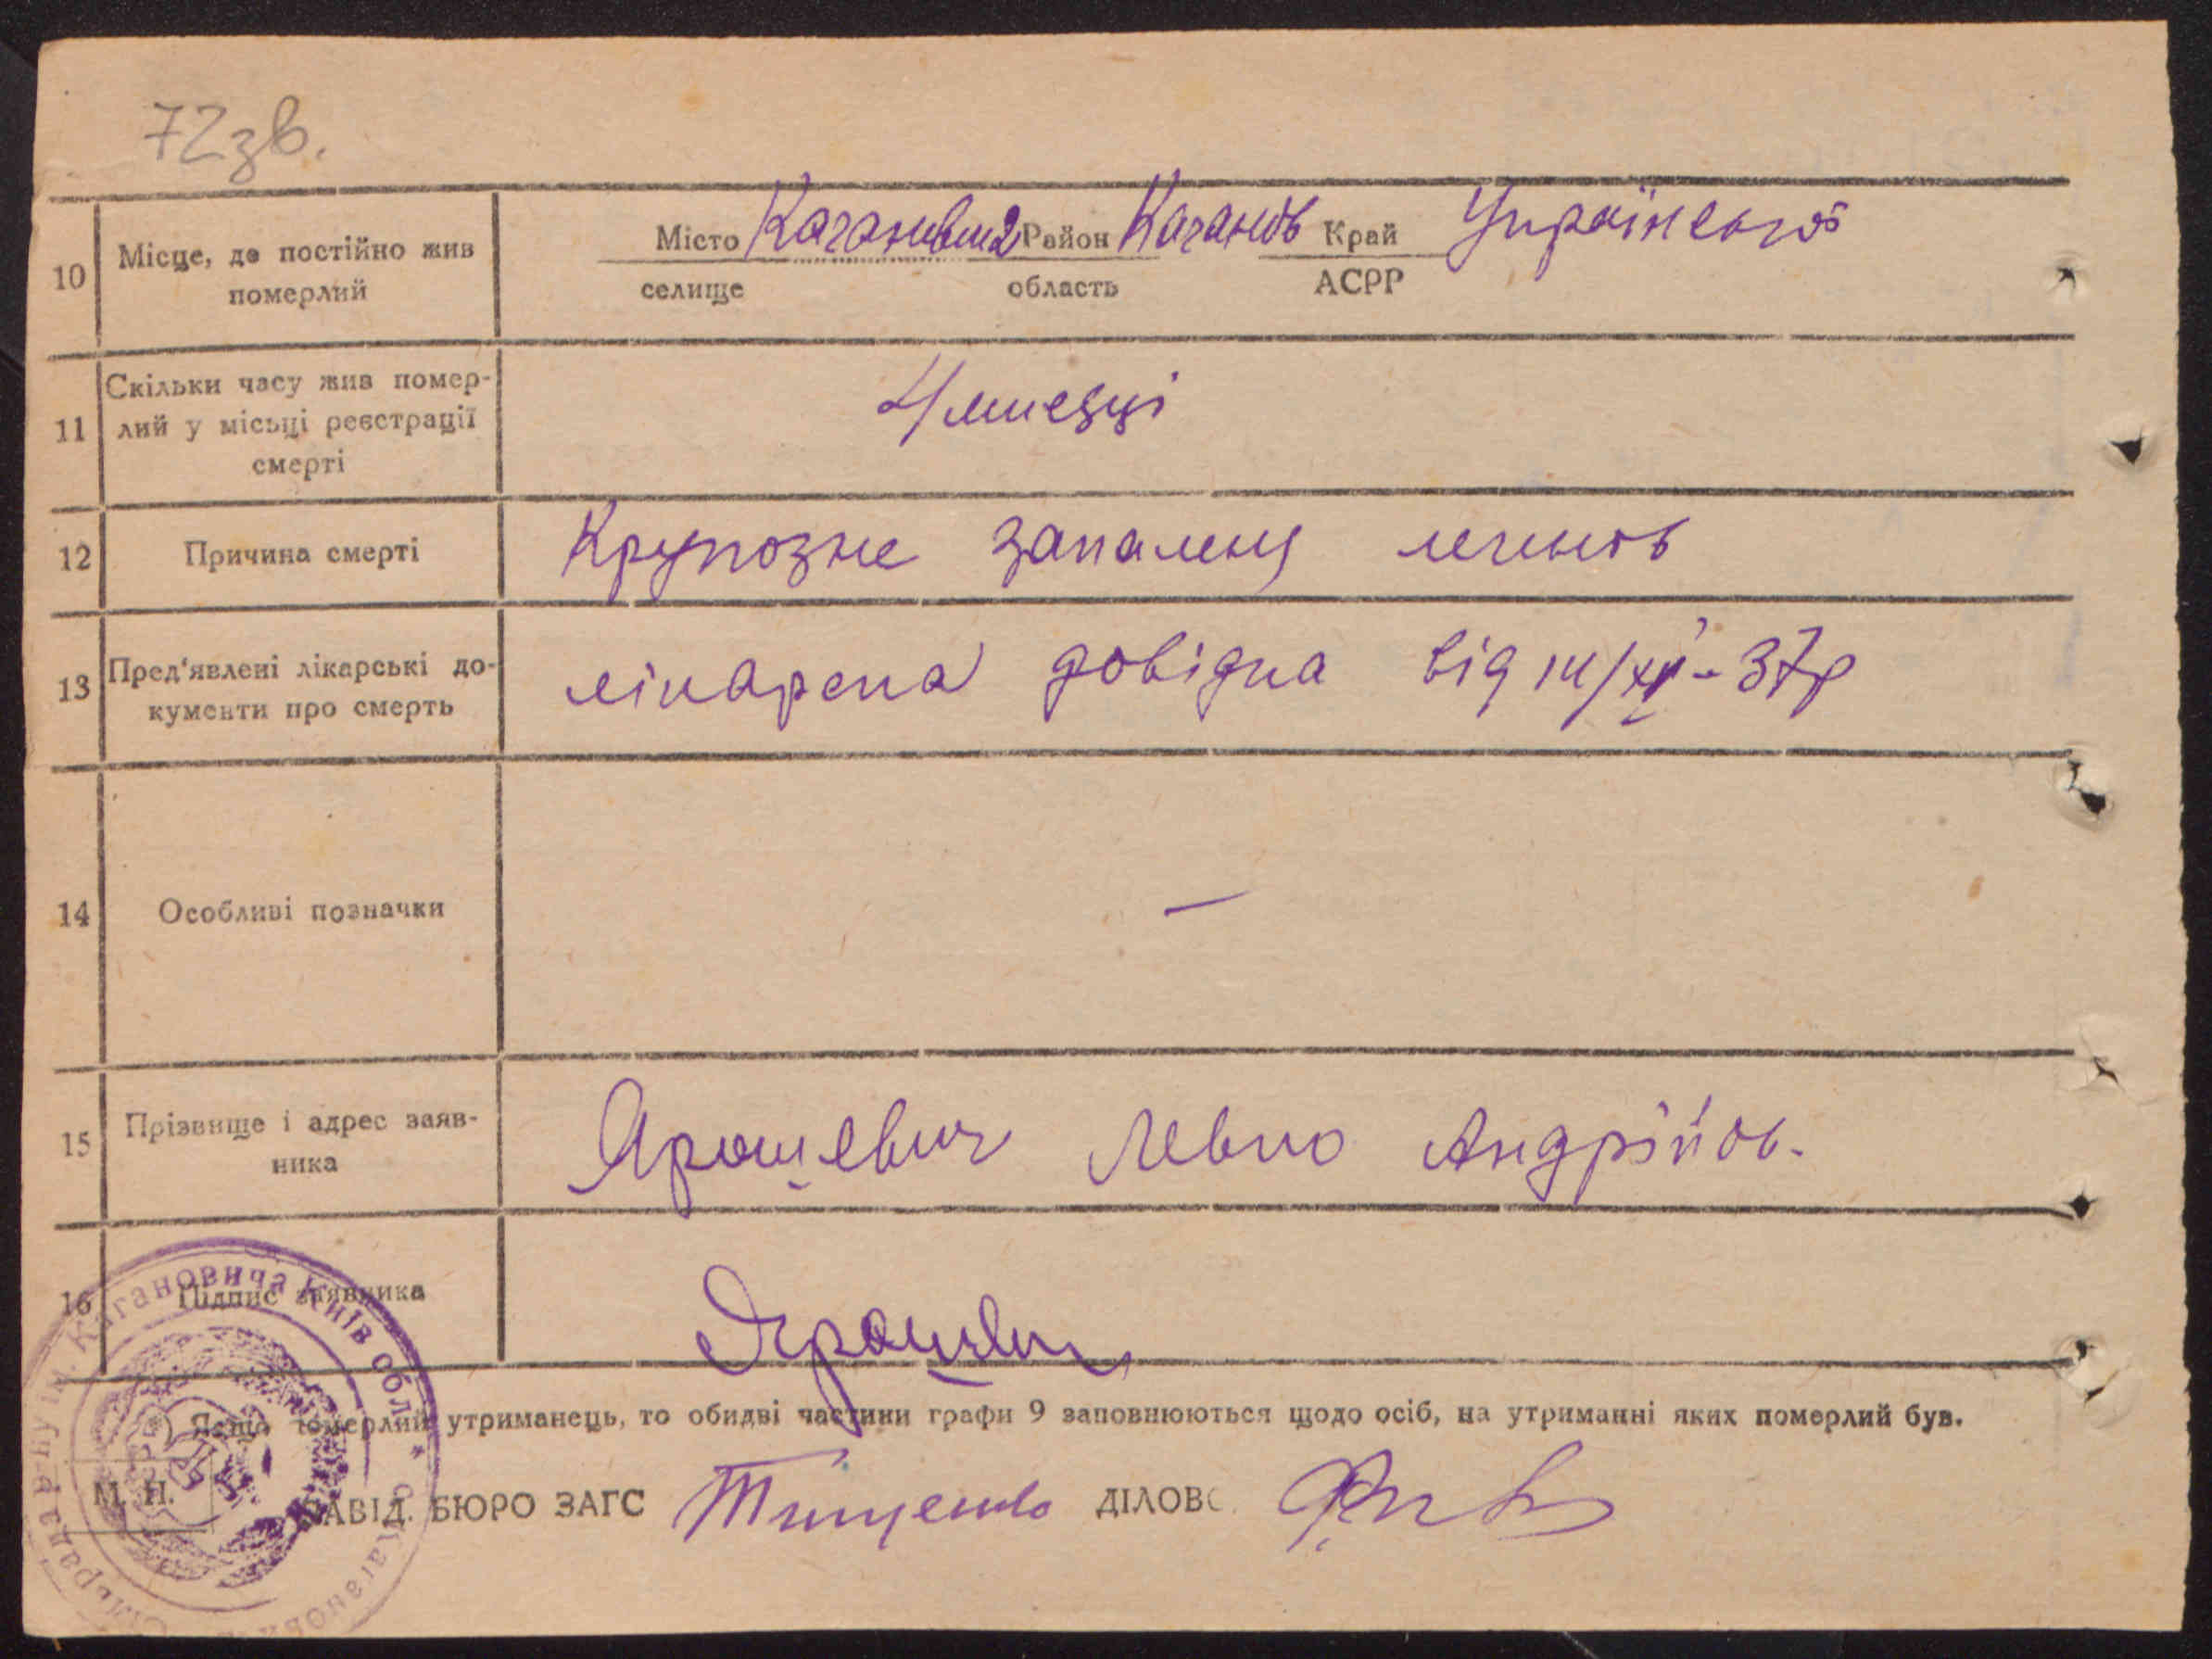 72зв.
10 Місце, де постійно жив померлий
Місто Каганович Район Каганов Край Української
селище область АСРР
11 Скільки часу жив помер-
лий у місьці реєстрації
смерті
4 місяці
12 Причина смерті Крупозне запаленя легнів
13 Пред'явлені лікарські до-
кументи про смерть
лікарска довідка від 14/XII-37р
14 Особливі позначки —
15 Прізвище і адрес заяв-
ника
Ярошевич Левко Андрійов.
16 Підпис заявника Ярошевич
*) Якщо померлий утриманець, то обидві частини графи 9 заповнюються щодо осіб, на утриманні яких померлий був.
М. П. ЗАВІД. БЮРО ЗАГС Тищенко ДІЛОВО
Кагановича Київ обл *